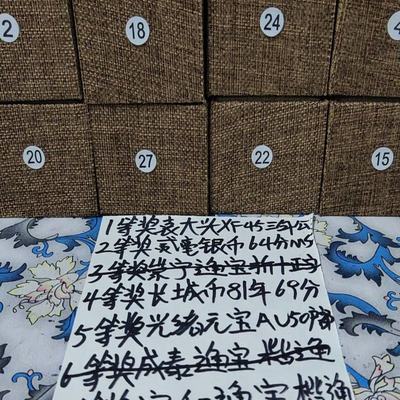 2 18 24 4
20 27 22 15
1等奖袁大头XF45三年公
2等奖贰毫银币64分MS
3等奖崇宁通宝折十
4等奖长城币81年69分
5等奖光绪元宝AU50
6等奖咸丰通宝